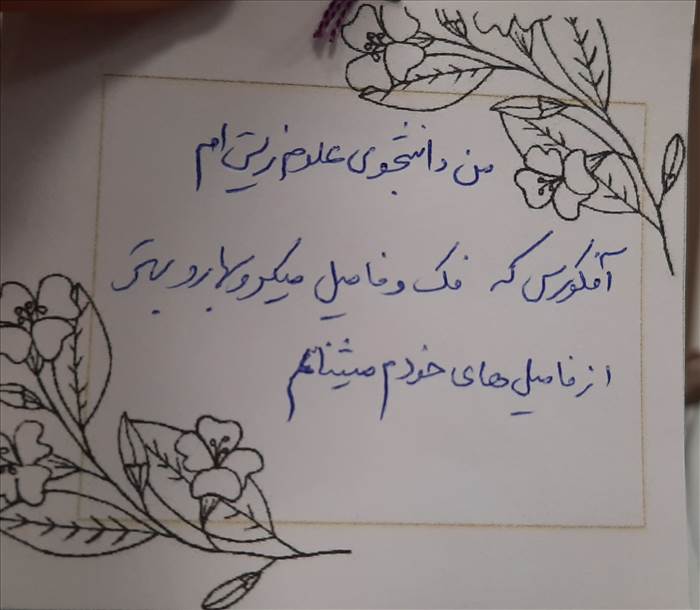 من دانشجوی علوم زیستی ام
آفکورس که فک و فامیل میکروبا رو بهتر
از فامیل های خودم میشناسم